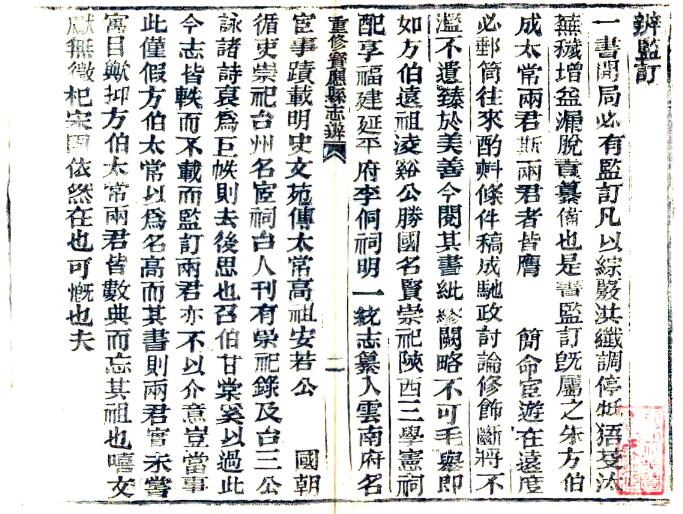 辨監訂
一書開局必有監訂凡以綜覈洪纖調停牴牾芟汰
蕪穢增益漏脫責綦備也是書監訂旣屬之朱方伯
成太常兩君斯兩君者皆膺 簡命宦遊在遠度
必郵筒往來酌斟條件稿成馳政討論修飾斷將不
濫不遺臻於美善今閱其書紕繆闕略不可毛舉即
如方伯遠祖凌谿公勝國名賢崇祀陝西三學憲祠
配享福建延平府李侗祠明一統志纂入雲南府名
重修寶應縣志辨 二
宦事蹟載明史文苑傳太常高祖安若公 國朝
循吏崇祀台州名宦祠台人刊有崇祀錄及台三公
詠諸詩裒爲巨帙則去後思也召伯甘棠奚以過此
今志皆軼而不載而監訂兩君亦不以介意豈當事
此僅假方伯太常以爲名高而其書則兩君實未嘗
寓目歟抑方伯太常兩君皆數典而忘其祖也嘻文
獻無徵杞宋固依然在也可慨也夫